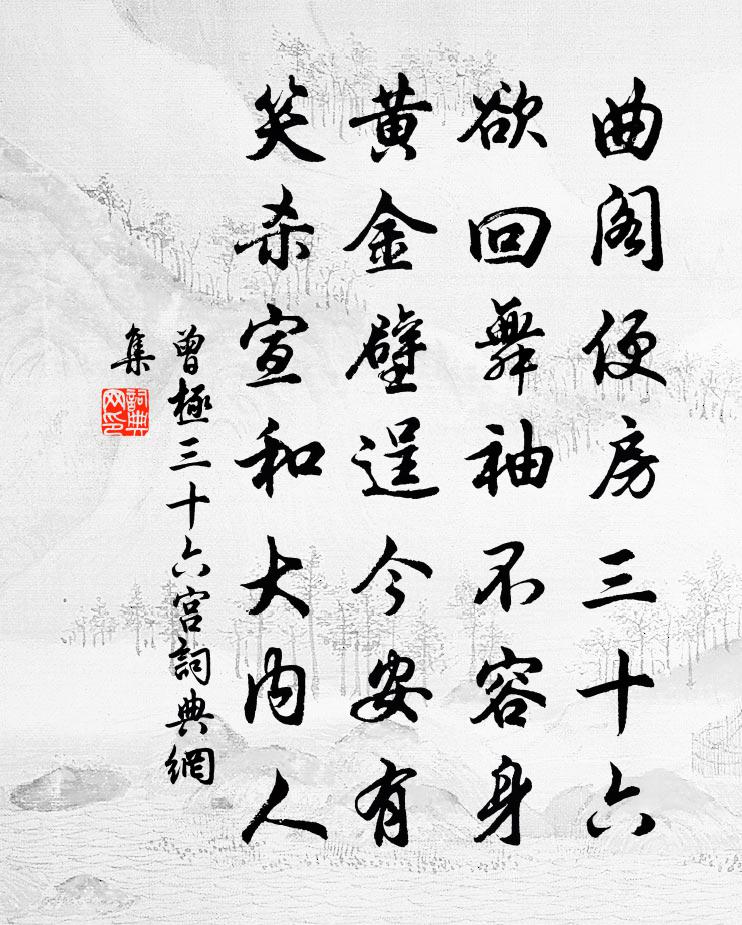 曲阁便房三十六
欲回舞袖不容身
黄金壁逞今安有
笑杀宣和大内人
曾極三十六宫詞典網
集
詞典
网印